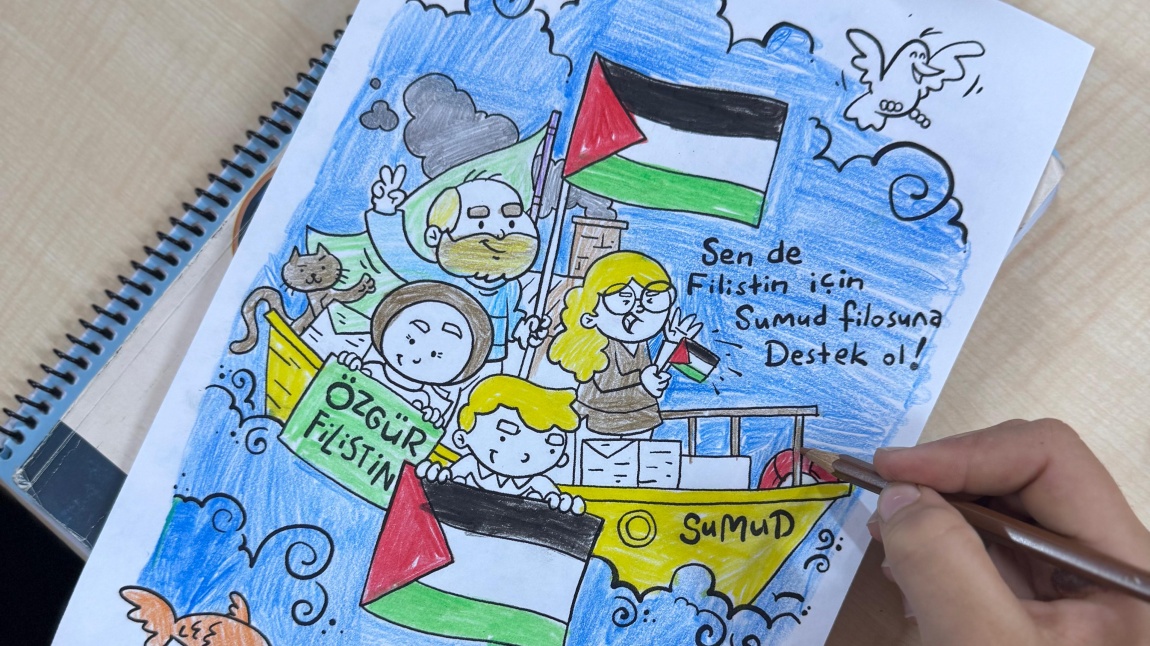 Sen de
Filistin için
Sumud filosuna
Destek ol!
ÖZGÜR
FiLiSTiN
SuMUD